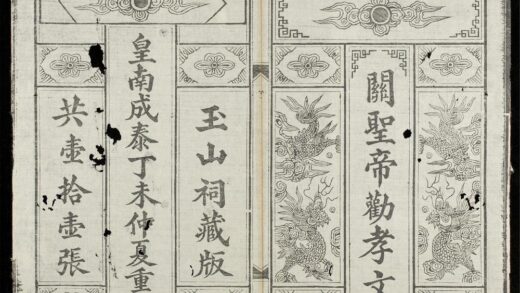 關聖帝勸孝文
玉山祠藏版
皇南成泰丁未仲夏重
共壹拾壹張